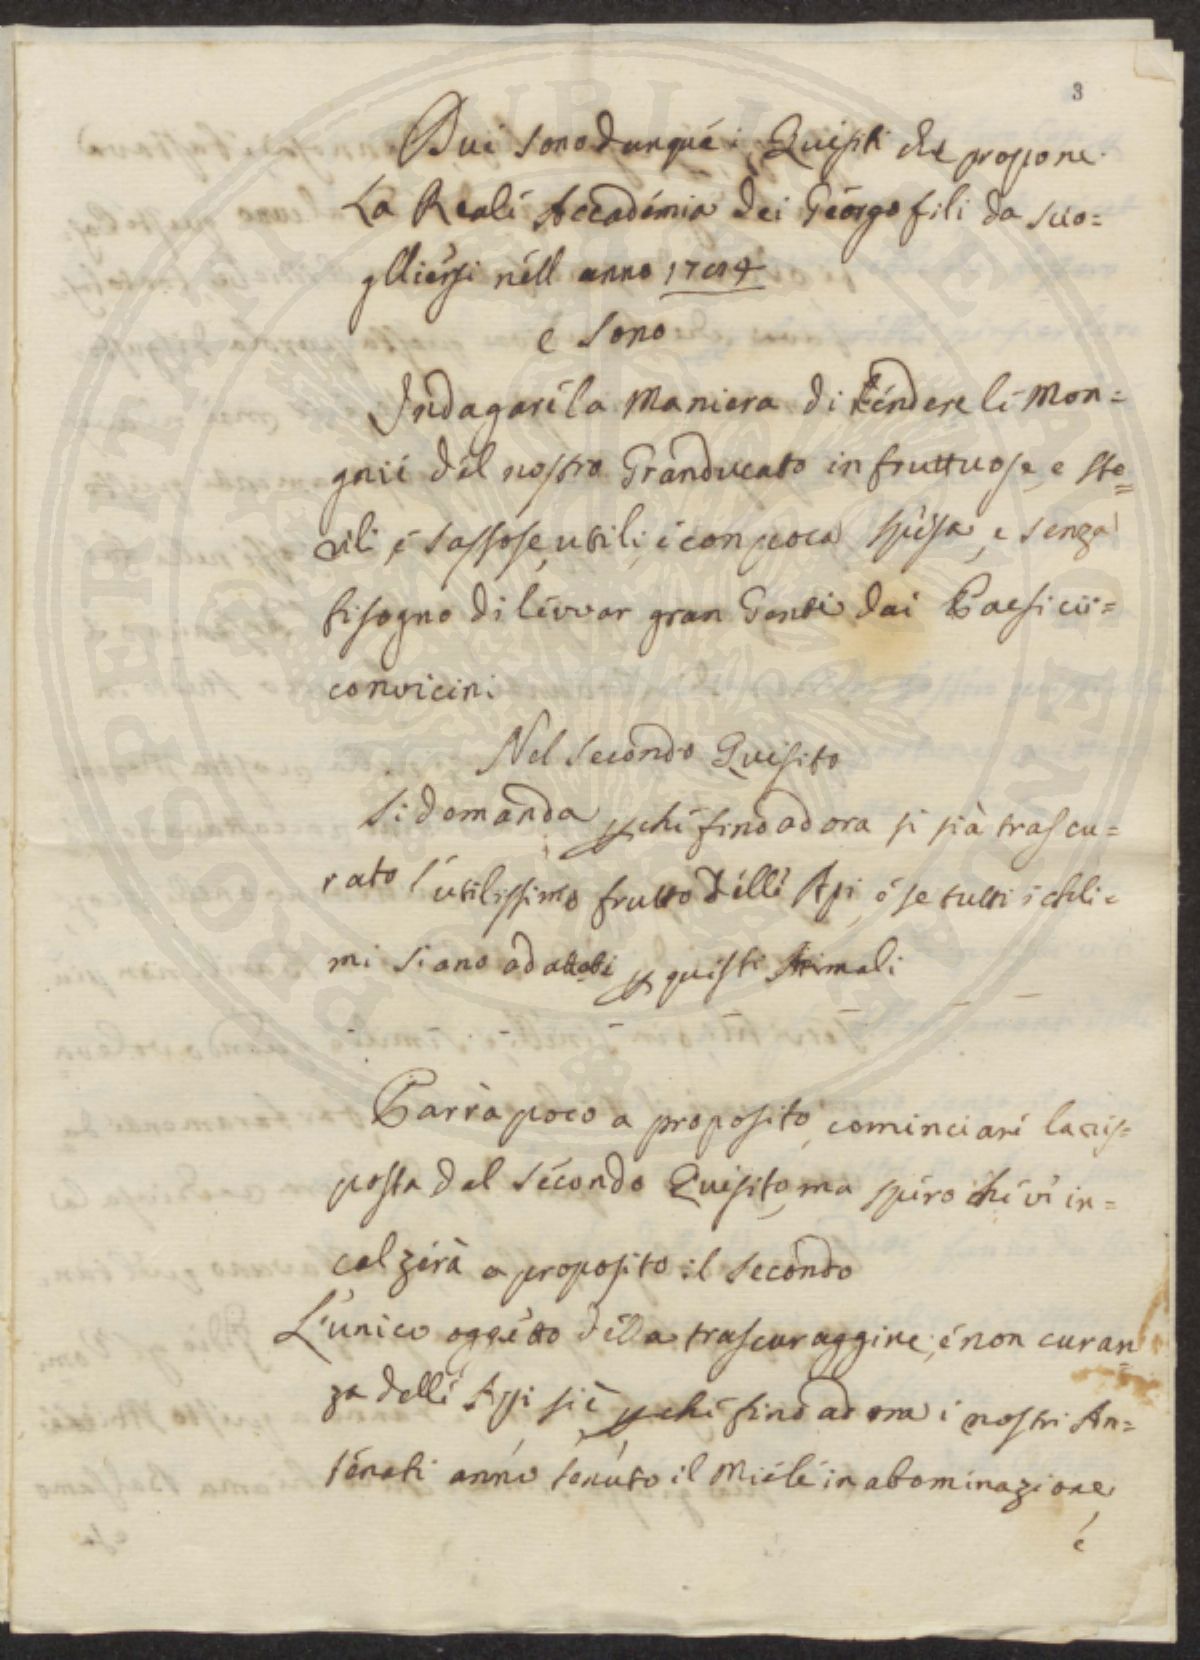 3
Dui sono dunque i Quisiti che propone
La Reale Accadémia dei Géorgofili da scio=
glliersi nell anno
e sono
Indagare la Maniera di rendere le Mon=
gnie del nostro Granducato infruttuose, e ste=
rili, e sassose, utili, e con poca spesa, e senza
bisogno di levvar gran Gente dai Paesi cir=
convicini
Nel secondo Quisito
si domanda perche fino ad ora si sià trascu=
rato l'utilissimo frutto delle Api, e se tutti i chli=
mi siano adattati per questi Animali
Parrà poco a proposito cominciare la ris=
posta dal secondo Quisito, ma spero che vi in=
calzerà a proposito il secondo
L'unico oggetto della trascuraggine, e non curan=
za delle Api si è perche fino ad ora i nostri An=
tenati anno tenuto il Miele in abominazione
e
PROSPERITATI PUBLICAE AUGENDAE